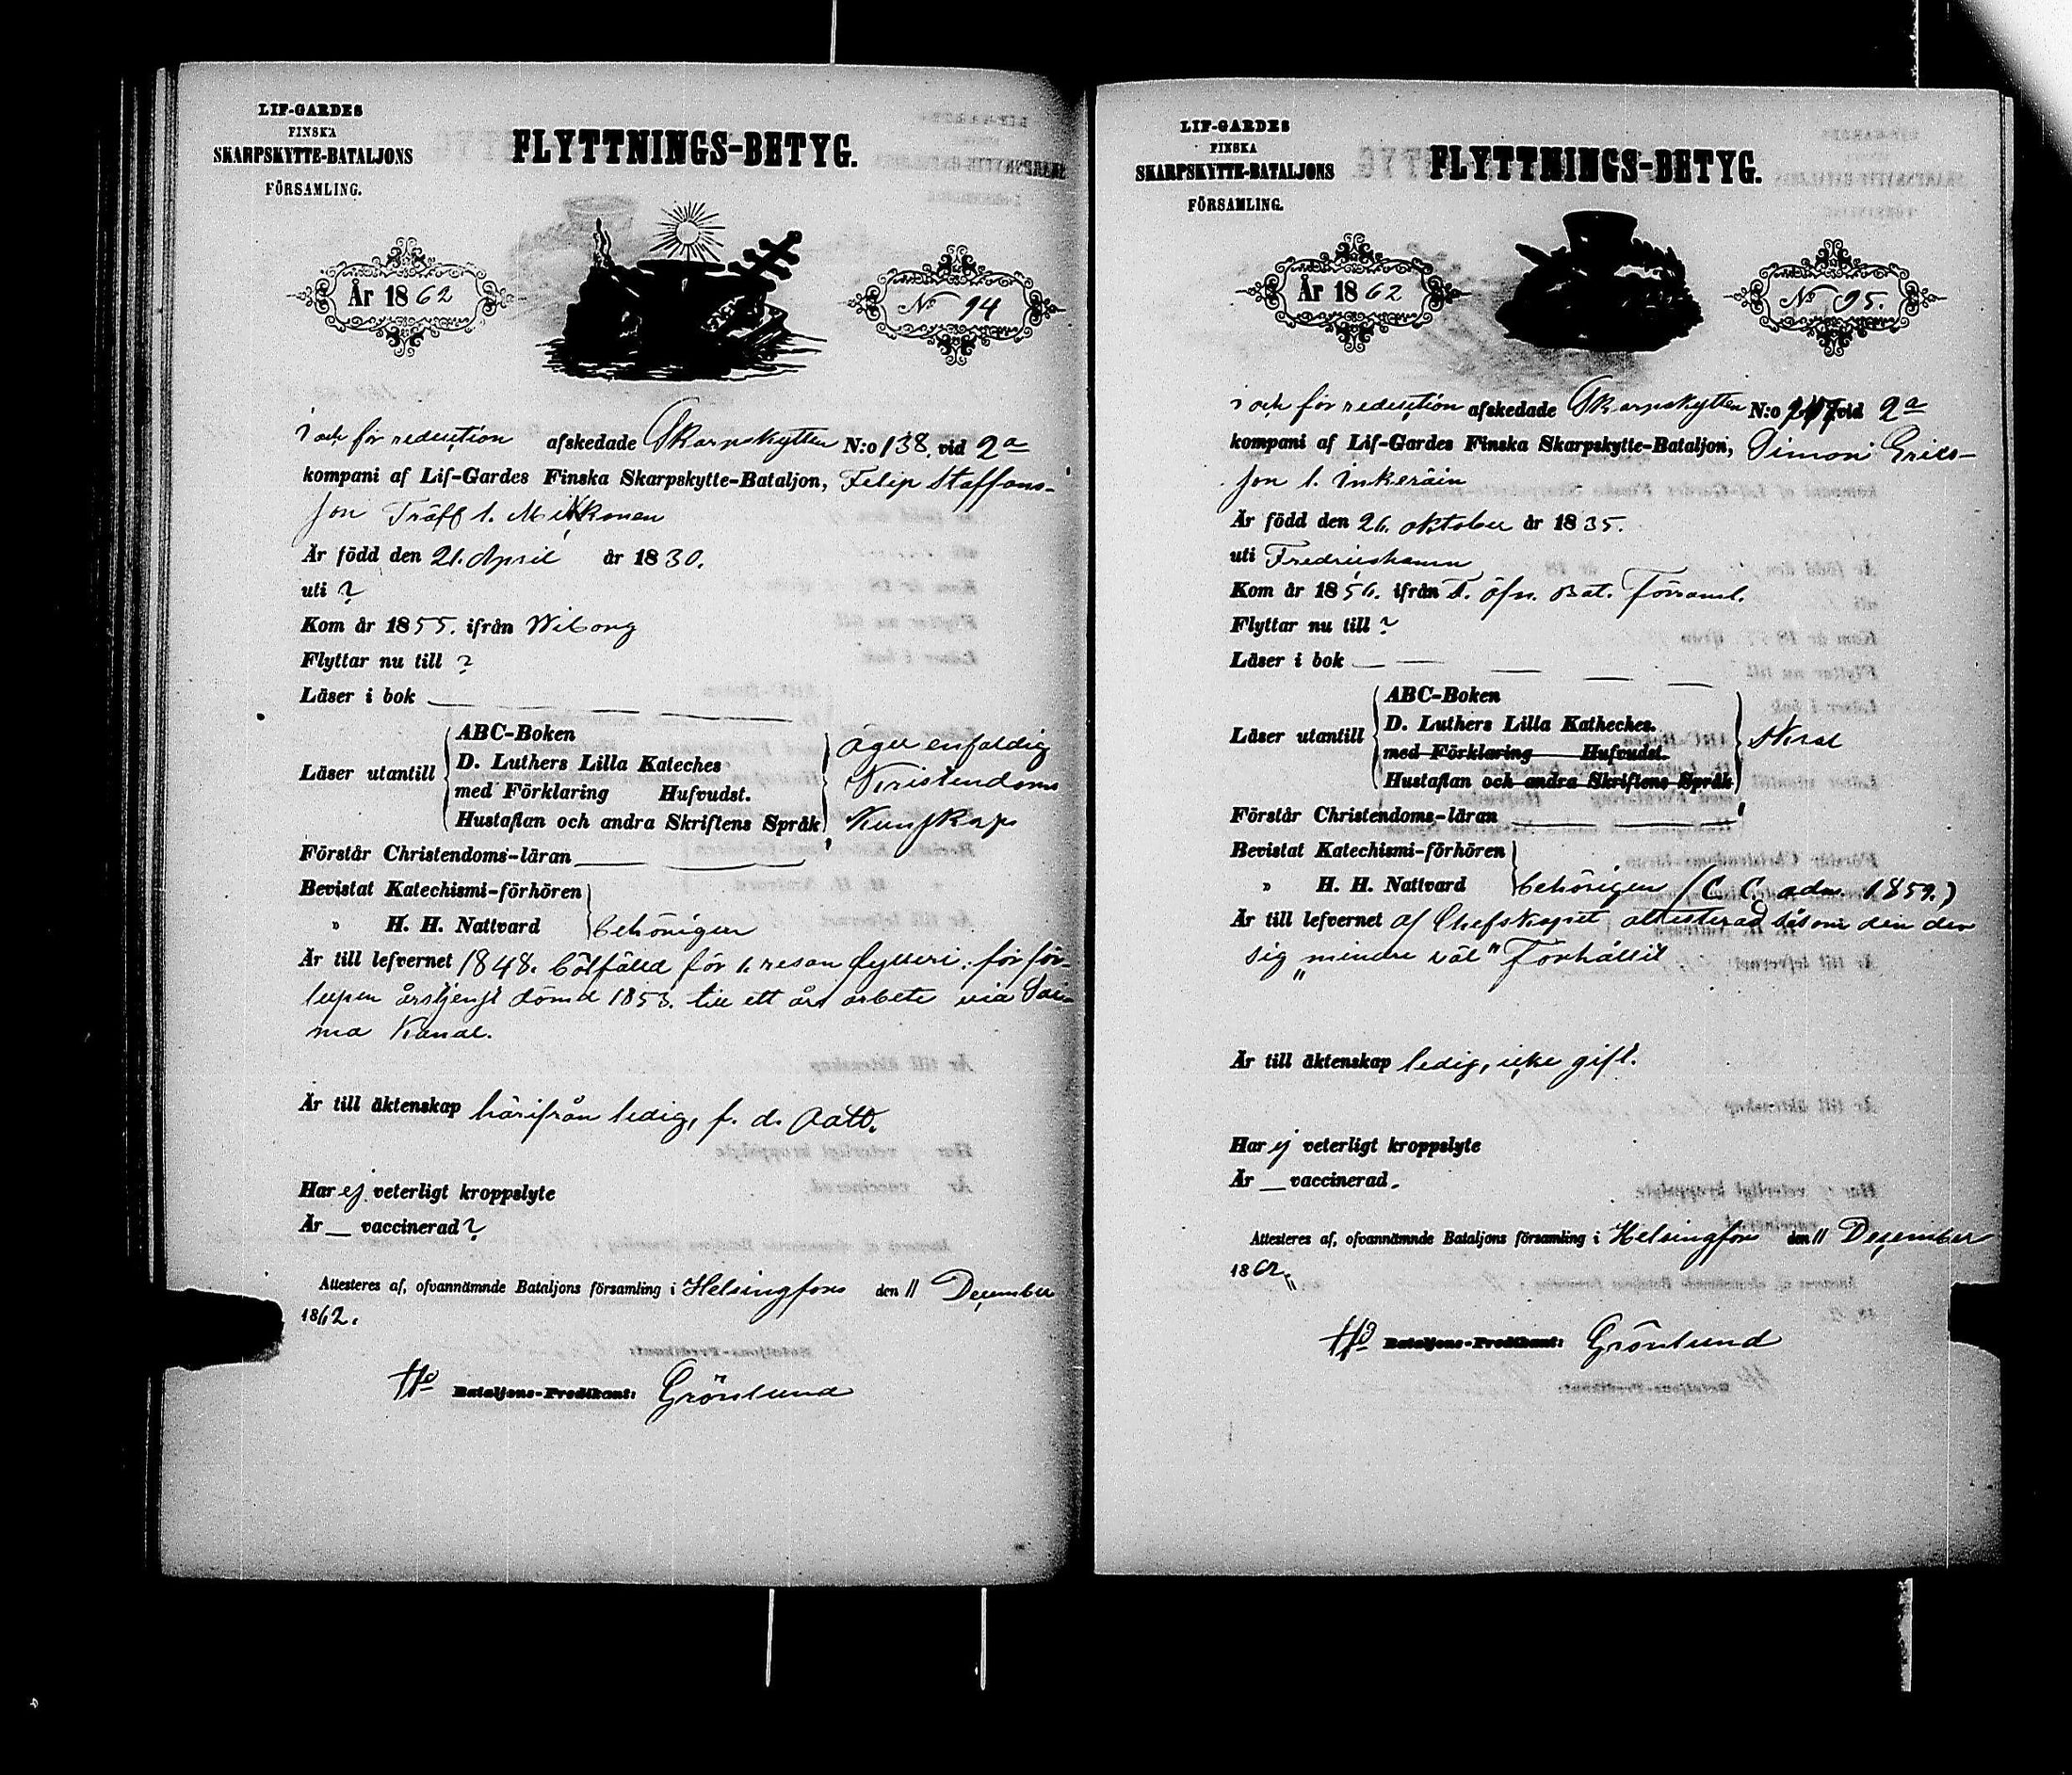 LIF-GARDES
FINSKA
SKARPSKYTTE-BATALJONS
FÖRSAMLING.
FLYTTNINGS-BETYG.
År 1862
No 94
i och för reduction afskedade Skarpskytten N:o 138. vid 2a
kompani af Lif-Gardes Finska Skarpskytte-Bataljon, Filip Staffans-
son Träff l. Mikkonen
Är född den 21. April år 1830.
uti ?
Kom år 1855. ifrån Wiborg
Flyttar nu till ?
Läser i bok
Läser utantill
ABC-Boken
D. Luthers Lilla Kateches
med Förklaring Hufvudst.
Hustaflan och andra Skriftens Språk
äger enfaldig
Kristendoms
Kunskap
Förstår Christendoms-läran
Bevistat Katechismi-förhören
" H. H. Nattvard behörigen
Är till lefvernet 1848. bötfälld för 1. resan fylleri; för för-
lupen årstjenst dömd 1853. till ett års arbete vid Sai-
ma Kanal.
Är till äktenskap härifrån ledig, f. d.
Har ej veterligt kroppslyte
Är vaccinerad ?
Attesteras af, ofvannämnde Bataljons församling i Helsingfors den 11 December
1862.
Bataljons-Predikant: Grönlund
LIF-GARDES
FINSKA
SKARPSKYTTE-BATALJONS
FÖRSAMLING.
FLYTTNINGS-BETYG.
År 1862
No 95.
i och för reduction afskedade Skarpskytten N:o vid 2a
kompani af Lif-Gardes Finska Skarpskytte-Bataljon, Simon Erics-
son l. Inkeräin
Är född den 26. oktober år 1835.
uti Fredrickshamn
Kom år 1856. ifrån öfn. Bat. Församl.
Flyttar nu till ?
Läser i bok
Läser utantill
ABC-Boken
D. Luthers Lilla Katheches.
med Förklaring Hufvudst.
Hustaflan och andra Skriftens Språk
Förstår Christendoms-läran
Bevistat Katechismi-förhören
" H. H. Nattvard behörigen (C. C. adm. 1859.)
Är till lefvernet af Chefskapet attesterad såsom den der
sig "mindre väl" Förhållit
Är till äktenskap ledig, icke gift.
Har ej veterligt kroppslyte
Är vaccinerad.
Attesteres af, ofvannämnde Bataljons församling i Helsingfors den 11 December
1862.
Bataljons-Predikant: Grönlund